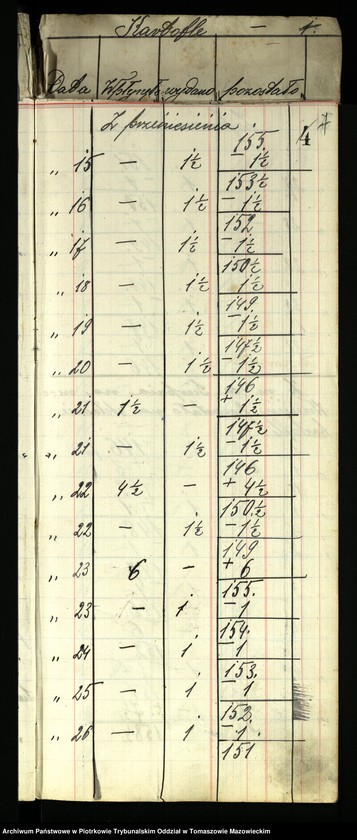 Kartofle — 1.
Data Wpłynęło wydano pozostało
Z przeniesienia 155. 4
„ 15 — 1½ — 1½
153½
„ 16 — 1½ — 1½
152
„ 17 — 1½ — 1½
150½
„ 18 — 1½ 1½
149
„ 19 — 1½ — 1½
147½
„ 20 — 1½ — 1½
146
„ 21 1½ — + 1½
147½
„ 21 — 1½ — 1½
146
„ 22 4½ — + 4½
150½
„ 22 — 1½ — 1½
149
„ 23 6 — + 6
155.
„ 23 — 1 — 1
154.
„ 24 — 1 — 1
153.
„ 25 — 1 — 1
152.
„ 26 — 1 — 1
151
Archiwum Państwowe w Piotrkowie Trybunalskim Oddział w Tomaszowie Mazowieckim